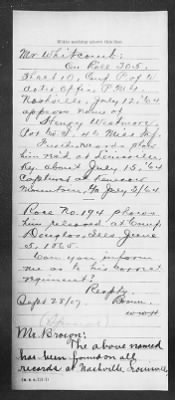 Mr Whitcomb:
On Roll 305,
Sheet 10, Conf. P. of W.
Office, P.M.G.
Nashville, July 12, '64
appears name of
Henry
Co. G, 46 Miss Inf.
records show
him rec'd at Louisville,
Ky. about July 15, '64
Captured at Kenesaw
Mountain, Ga July 3/64
Roll No. 194 shows
him released at Camp
Douglas, Ills June
5, 1865.
Can you inform
me as to his correct
regiment?
Respy.
Sept 28/07. Brown,
Mr. Brown:
The above named
has been found on all
records at Nashville, Louisville,